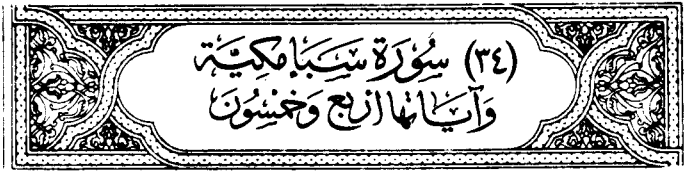 (٣٤) سُورَة سَبَإ مكيَّة
وَآيَاتها أربَع وَخمسُونَ